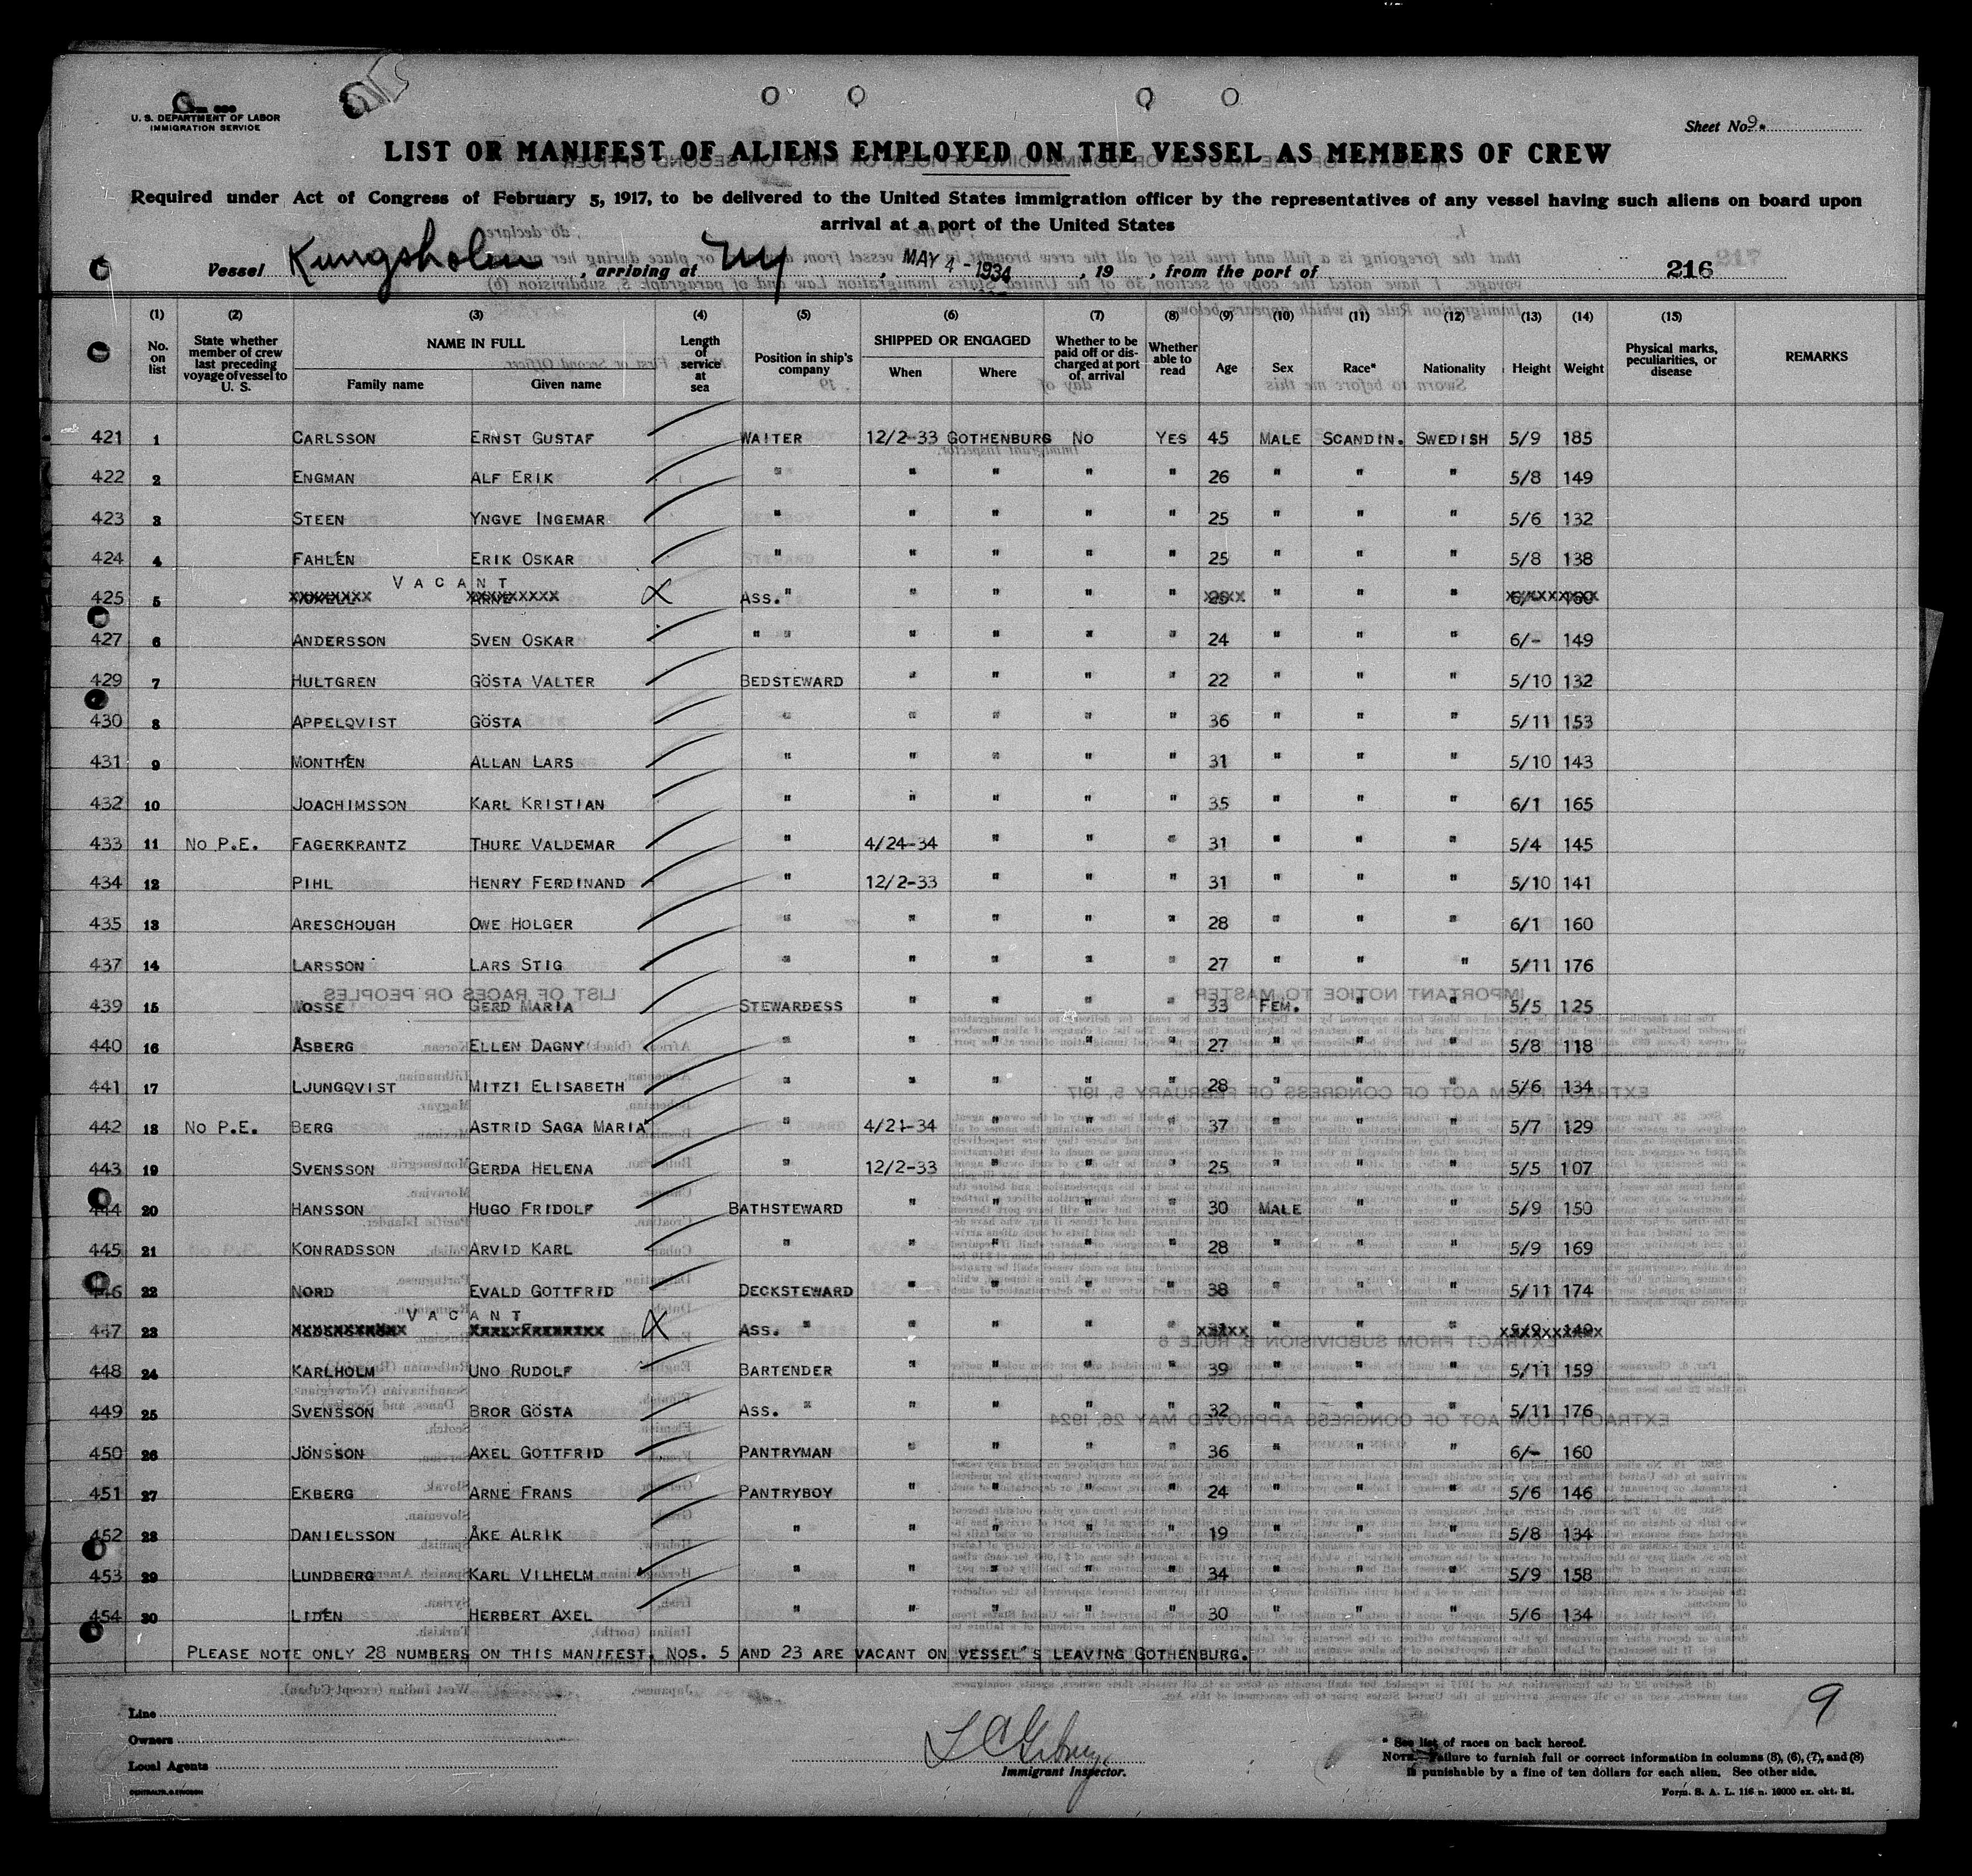 U. S. DEPARTMENT OF LABOR
IMMIGRATION SERVICE
Sheet No. 9.
LIST OR MANIFEST OF ALIENS EMPLOYED ON THE VESSEL AS MEMBERS OF CREW
Required under Act of Congress of February 5, 1917, to be delivered to the United States immigration officer by the representatives of any vessel having such aliens on board upon
arrival at a port of the United States
Vessel Kungsholm, arriving at NY, MAY 4 - 1934, 19 , from the port of 216
(1) (2) (3) (4) (5) (6) (7) (8) (9) (10) (11) (12) (13) (14) (15)
No. on list State whether member of crew last preceding voyage of vessel to U. S. NAME IN FULL Family name Given name Length of service at sea Position in ship's company SHIPPED OR ENGAGED When Where Whether to be paid off or discharged at port of arrival Whether able to read Age Sex Race* Nationality Height Weight Physical marks, peculiarities, or disease REMARKS
421 1 CARLSSON ERNST GUSTAF WAITER 12/2-33 GOTHENBURG NO YES 45 MALE SCANDIN. SWEDISH 5/9 185
422 2 ENGMAN ALF ERIK " " " " " 26 " " " 5/8 149
423 3 STEEN YNGVE INGEMAR " " " " " 25 " " " 5/6 132
424 4 FAHLÉN ERIK OSKAR " " " " " 25 " " " 5/8 138
VACANT
425 5 ASS. " " " " " " " "
427 6 ANDERSSON SVEN OSKAR " " " " " " 24 " " " 6/- 149
429 7 HULTGREN GÖSTA VALTER BEDSTEWARD " " " " 22 " " " 5/10 132
430 8 APPELQVIST GÖSTA " " " " " 36 " " " 5/11 153
431 9 MONTHÉN ALLAN LARS " " " " " 31 " " " 5/10 143
432 10 JOACHIMSSON KARL KRISTIAN " " " " " 35 " " " 6/1 165
433 11 NO P.E. FAGERKRANTZ THURE VALDEMAR " 4/24-34 " " " 31 " " " 5/4 145
434 12 PIHL HENRY FERDINAND " 12/2-33 " " " 31 " " " 5/10 141
435 13 ARESCHOUGH OWE HOLGER " " " " " 28 " " " 6/1 160
437 14 LARSSON LARS STIG " " " " " 27 " " " 5/11 176
439 15 WOSSE GERD MARIA STEWARDESS " " " " 33 FEM. " " 5/5 125
440 16 ÅSBERG ELLEN DAGNY " " " " " 27 " " " 5/8 118
441 17 LJUNGQVIST MITZI ELISABETH " " " " " 28 " " " 5/6 134
442 18 NO P.E. BERG ASTRID SAGA MARIA " 4/21-34 " " " 37 " " " 5/7 129
443 19 SVENSSON GERDA HELENA " 12/2-33 " " " 25 " " " 5/5 107
444 20 HANSSON HUGO FRIDOLF BATHSTEWARD " " " " 30 MALE " " 5/9 150
445 21 KONRADSSON ARVID KARL " " " " " 28 " " " 5/9 169
446 22 NORD EVALD GOTTFRID DECKSTEWARD " " " " 38 " " " 5/11 174
VACANT
447 23 ASS. " " " " " " " "
448 24 KARLHOLM UNO RUDOLF BARTENDER " " " " 39 " " " 5/11 159
449 25 SVENSSON BROR GÖSTA ASS. " " " " " 32 " " " 5/11 176
450 26 JÖNSSON AXEL GOTTFRID PANTRYMAN " " " " 36 " " " 6/- 160
451 27 EKBERG ARNE FRANS PANTRYBOY " " " " 24 " " " 5/6 146
452 28 DANIELSSON ÅKE ALRIK " " " " " 19 " " " 5/8 134
453 29 LUNDBERG KARL VILHELM " " " " " 34 " " " 5/9 158
454 30 LIDÉN HERBERT AXEL " " " " " 30 " " " 5/6 134
PLEASE NOTE ONLY 28 NUMBERS ON THIS MANIFEST. NOS. 5 AND 23 ARE VACANT ON VESSEL"S LEAVING GOTHENBURG.
9
Line
Owners
Local Agents
Immigrant Inspector.
* See list of races on back hereof.
NOTE.—Failure to furnish full or correct information in columns (3), (6), (7), and (8)
is punishable by a fine of ten dollars for each alien. See other side.
Form. S. A. L. 116 n. 10000 ex. okt. 31.